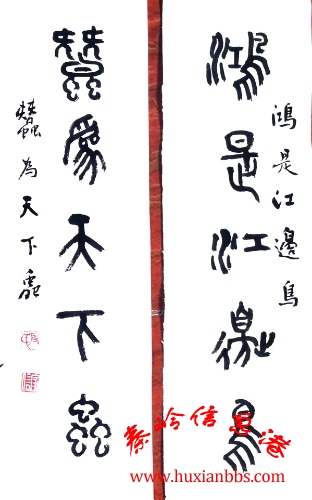 鴻是江邊鳥
鴻是江邊鳥
蠶為天下蟲
蠶為天下蟲
秦岭信息港
www.huxianbbs.com